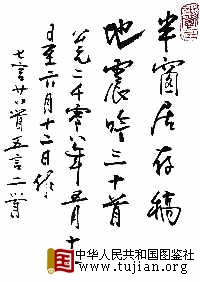 半窗居存稿
地震吟三十首
公元二千零八年五月十
日至六月十二日作
七言廿八首五言二首
中华人民共和国图鉴社
www.tujian.org